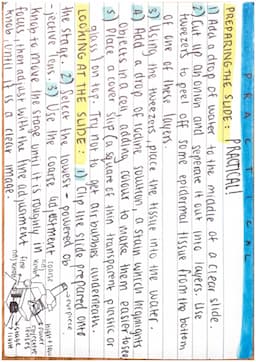 PRACTICAL
PREPARING THE SLIDE: PRACTICAL!
1) Add a drop of water to the middle of a clear slide.
2) Cut up an onion and seperate it out into layers. Use
tweezers to peel off some epidermal tissue from the bottom
of one of these layers.
3) Using the tweezers, place the tissue into the water.
4) Add a drop of iodine solution, a stain which highlights
objects in a cell adding colour to make them easier to see
5) Place a cover slip (a square of thin transparent plastic or
glass) on top. Try not to get air bubbles underneath.
LOOKING AT THE SLIDE: 1) Clip the slide prepared onto
the stage. 2) Select the lowest-powered ob
-jective lens. 3) Use the coarse adjustment
knob to move the stage until it is roughly in
focus, then adjust with the fine adjustment
knob until it is a clear image.
eyepiece
coarse
fine
stage
light